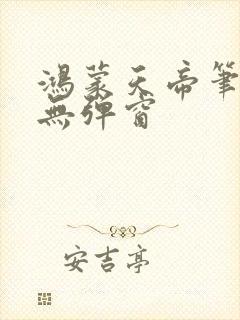 鴻蒙天帝筆
無彈窗
安吉亭